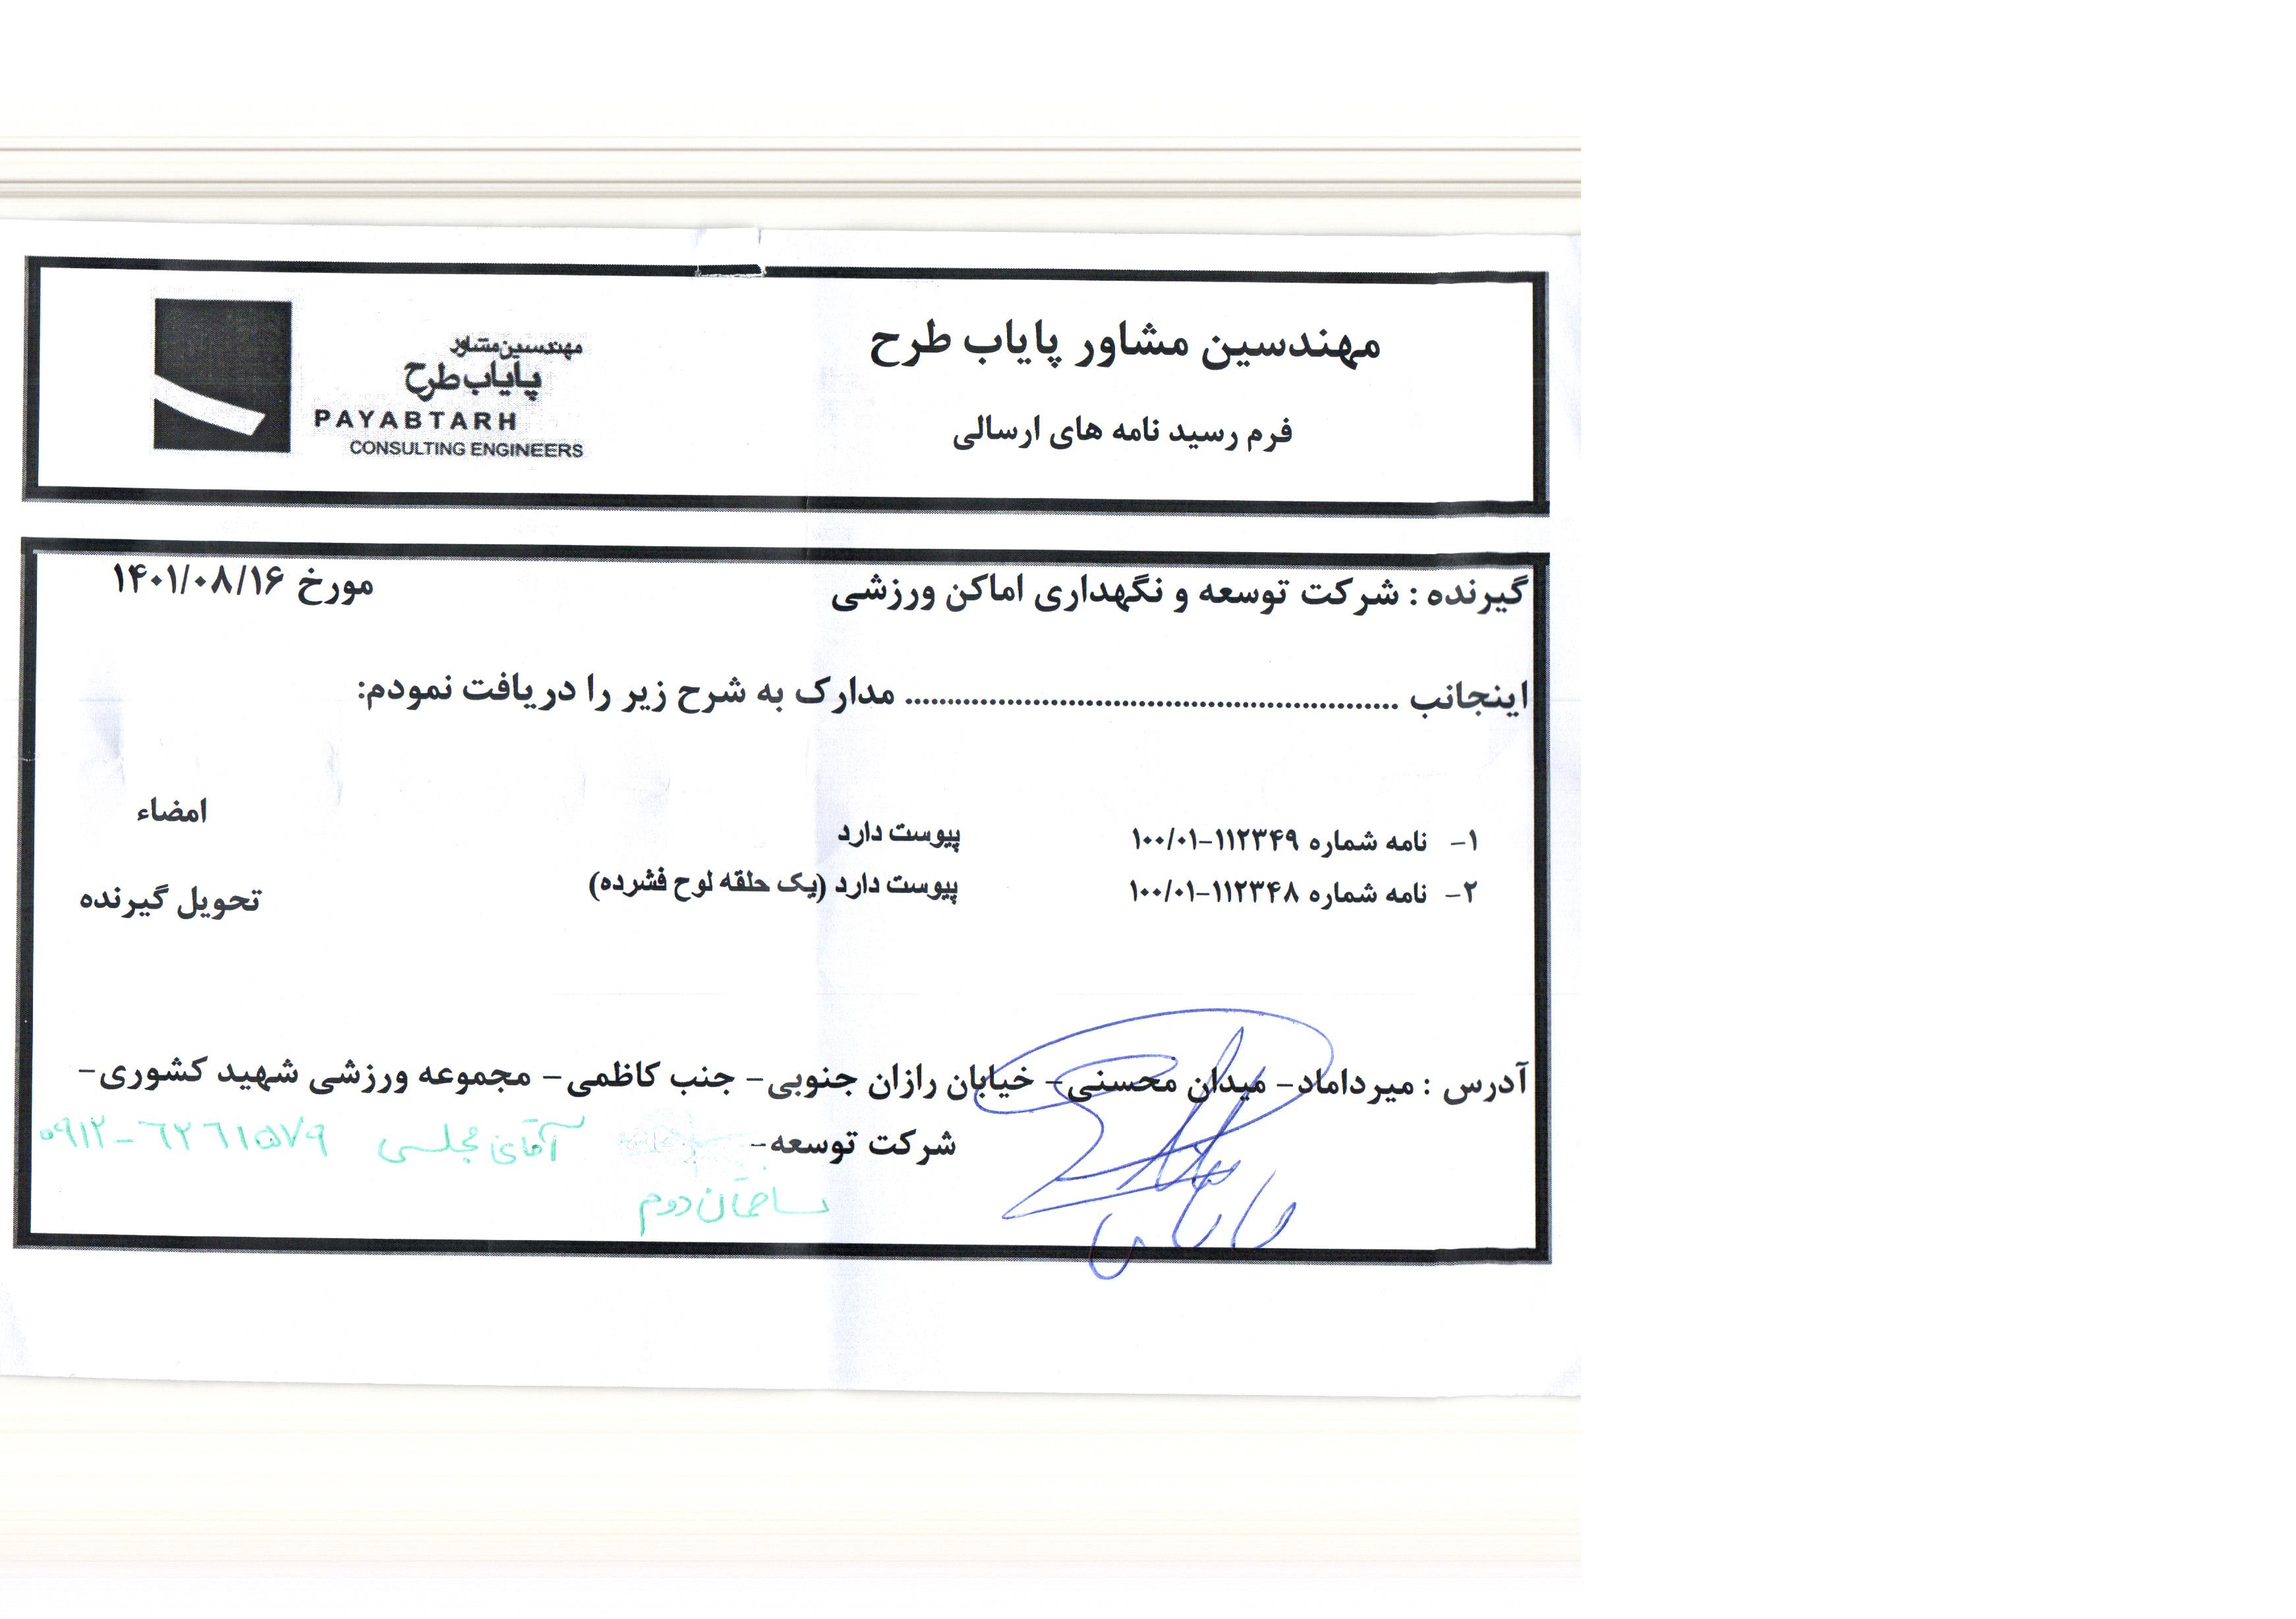 مهندسین مشاور پایاب طرح
فرم رسید نامه های ارسالی
مهندسین مشاور
پایاب طرح
PAYABTARH
CONSULTING ENGINEERS
گیرنده : شرکت توسعه و نگهداری اماکن ورزشی مورخ ۱۴۰۱/۰۸/۱۶
اینجانب ........................................................... مدارک به شرح زیر را دریافت نمودم:
امضاء
۱- نامه شماره ۱۱۲۳۴۹-۱۰۰/۰۱ پیوست دارد
۲- نامه شماره ۱۱۲۳۴۸-۱۰۰/۰۱ پیوست دارد (یک حلقه لوح فشرده)
تحویل گیرنده
آدرس : میرداماد- میدان محسنی- خیابان رازان جنوبی- جنب کاظمی- مجموعه ورزشی شهید کشوری-
شرکت توسعه- آقای مجلسی ۰۹۱۲-۶۲۶۱۵۷۹
ساختمان دوم